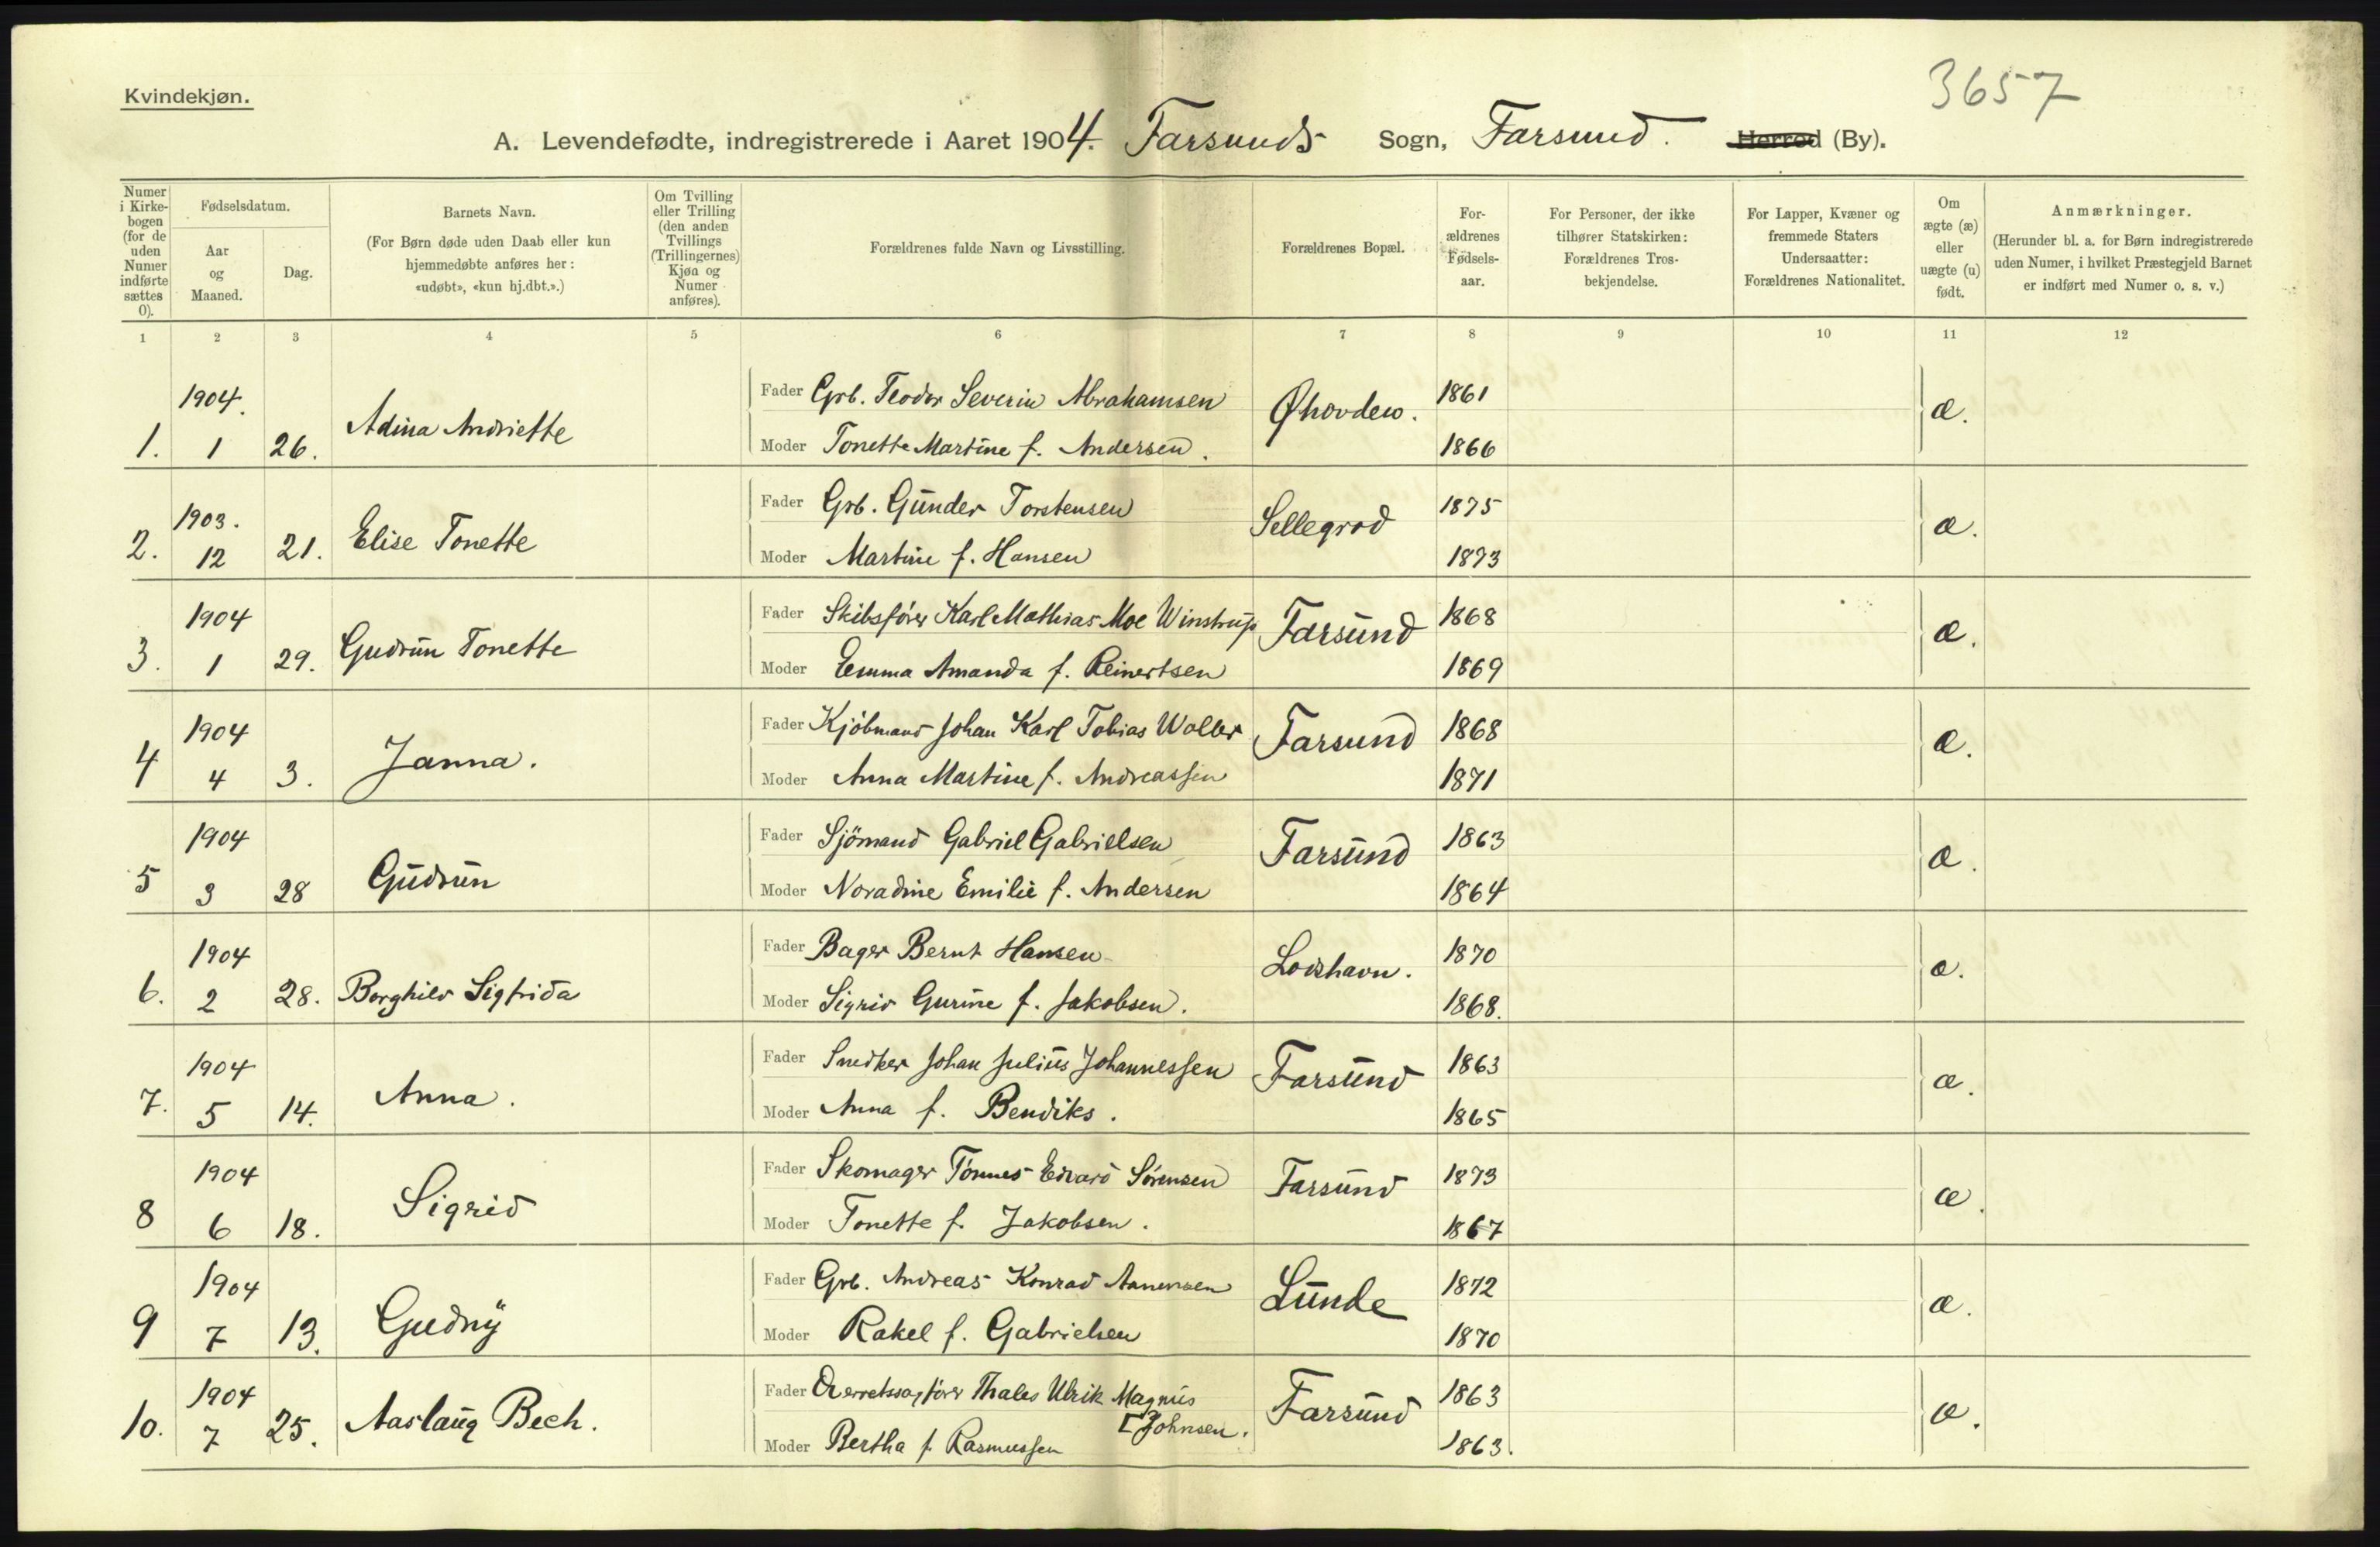 3657
Kvindekjøn.
A. Levendefødte, indregistrerede i Aaret 1904. Farsunds Sogn, Farsund. Herred (By).
Numer i Kirkebogen (for de uden Numer indførte sættes 0).
Fødselsdatum.
Aar og Maaned.
Dag.
Barnets Navn.
(For Børn døde uden Daab eller kun hjemmedøbte anføres her: «udøbt», «kun hj.dbt.».)
Om Tvilling eller Trilling (den anden Tvillings (Trillingernes) Kjøn og Numer anføres).
Forældrenes fulde Navn og Livsstilling.
Forældrenes Bopæl.
Forældrenes Fødselsaar.
For Personer, der ikke tilhører Statskirken: Forældrenes Trosbekjendelse.
For Lapper, Kvæner og fremmede Staters Undersaatter: Forældrenes Nationalitet.
Om ægte (æ) eller uægte (u) født.
Anmærkninger.
(Herunder bl. a. for Børn indregistrerede uden Numer, i hvilket Præstegjeld Barnet er indført med Numer o. s. v.)
1 2 3 4 5 6 7 8 9 10 11 12
1. 1904. 1 26. Adina Andriette
Fader Grb. Teodor Severin Abrahamsen Øhovden. 1861 æ.
Moder Tonette Martine f. Andersen. 1866
2. 1903. 12 21. Elise Tonette
Fader Grb. Gunder Torstensen Sellegrod 1875 æ.
Moder Martine f. Hansen 1873
3. 1904 1 29. Gudrun Tonette
Fader Skibsfører Karl Mathias Moe Winstrup Farsund 1868 æ.
Moder Emma Amanda f. Reinertsen 1869
4 1904 4 3. Janna.
Fader Kjöbmand Johan Karl Tobias Waller Farsund 1868 æ.
Moder Anna Martine f. Andreassen 1871
5 1904 3 28 Gudrun
Fader Sjömand Gabriel Gabrielsen Farsund 1863 æ.
Moder Noradine Emilie f. Andersen 1864
6. 1904 2 28. Borghild Sigfrida
Fader Bager Bernt Hansen Loshavn. 1870 æ.
Moder Sigrid Gurine f. Jakobsen. 1868.
7. 1904 5 14. Anna.
Fader Snedker Johan Julius Johannessen Farsund 1863 æ.
Moder Anna f. Bendiks. 1865
8 1904 6 18. Sigrid
Fader Skomager Tönnes Edvard Sörensen Farsund 1873 æ.
Moder Tonette f. Jakobsen. 1867
9 1904 7 13. Gudny
Fader Grb. Andreas Konrad Aanensen Lunde 1872 æ.
Moder Rakel f. Gabrielsen 1870
10. 1904 7 25. Aaslaug Bech.
Fader Overretssagförer Thales Ulrik Magnus Farsund 1863 æ.
[Johnsen.
Moder Bertha f. Rasmussen 1863.